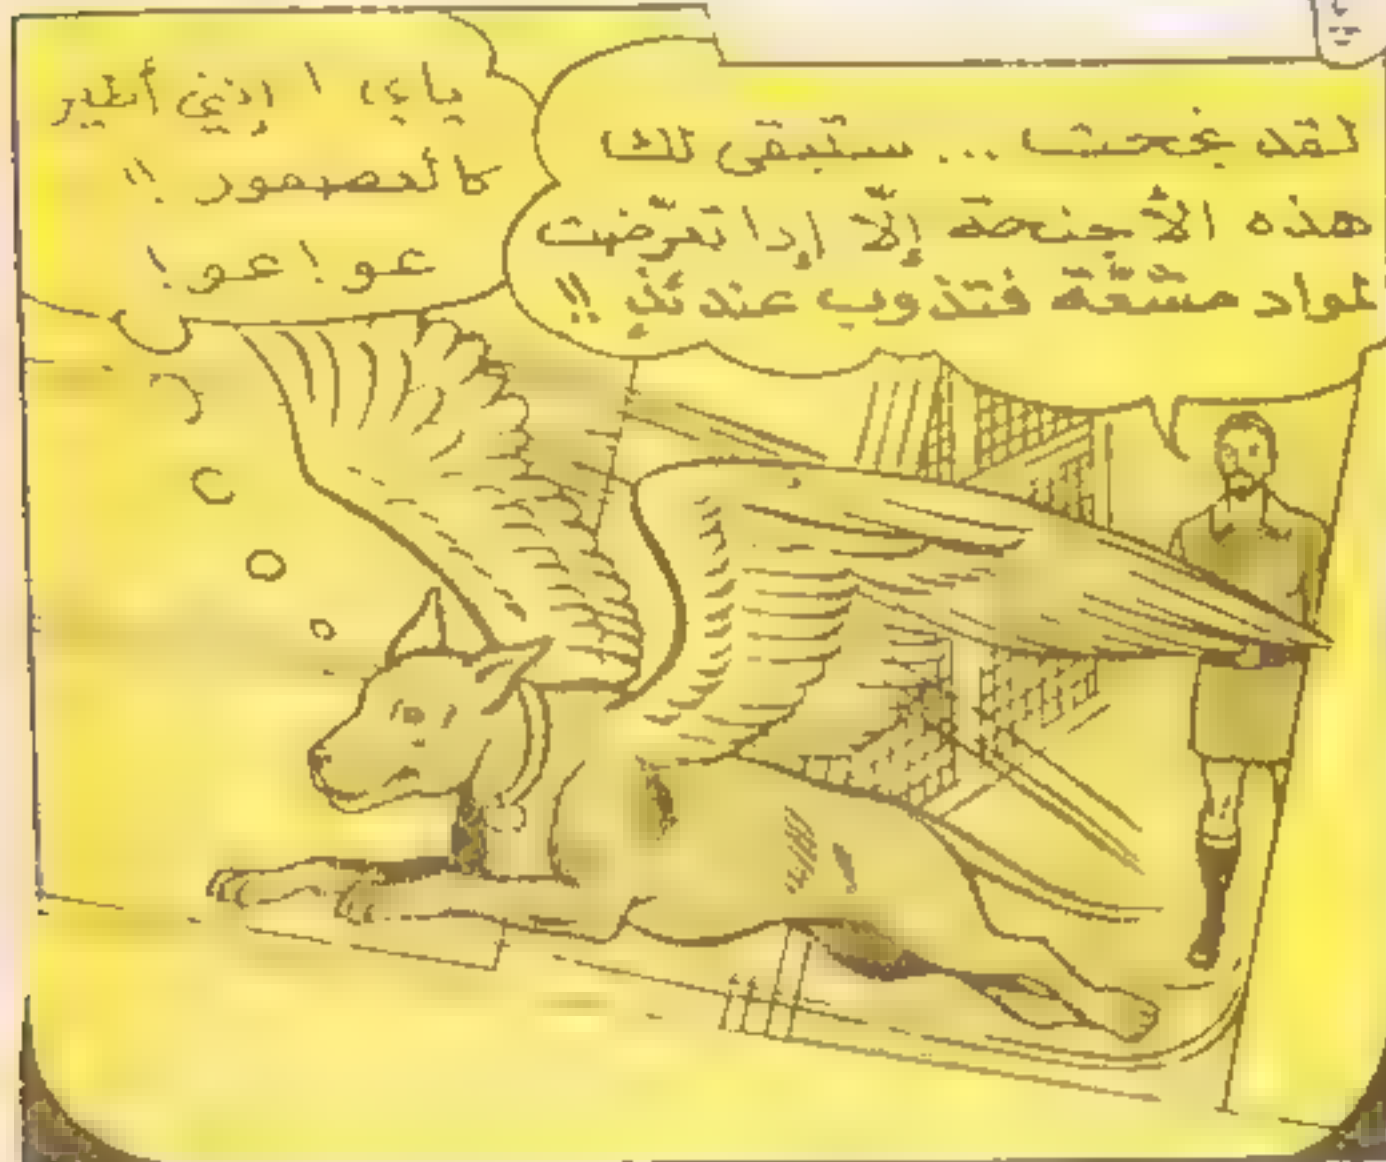 لقد نجحت ... ستبقى لك
هذه الأجنحة إلّا إذا تعرّضت
لمواد مشعّة فتذوب عندئذٍ !!
ياي ! إنني أطير
كالعصفور !!
عو ! عو !